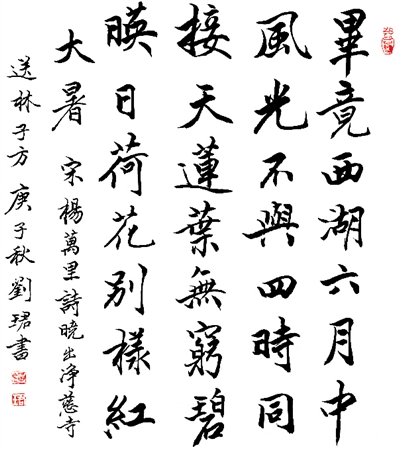 畢竟西湖六月中
風光不與四時同
接天蓮葉無窮碧
暎日荷花別樣紅
大暑 宋楊萬里詩曉出淨慈寺
送林子方 庚子秋劉珺書